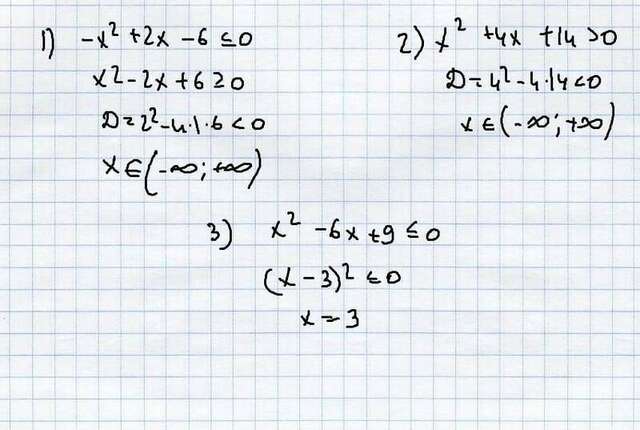 1) -x² + 2x - 6 ≤ 0
x² - 2x + 6 ≥ 0
D = 2² - 4·1·6 < 0
x ∈ (-∞; +∞)
2) x² + 4x + 14 > 0
D = 4² - 4·14 < 0
x ∈ (-∞; +∞)
3) x² - 6x + 9 ≤ 0
(x - 3)² ≤ 0
x = 3